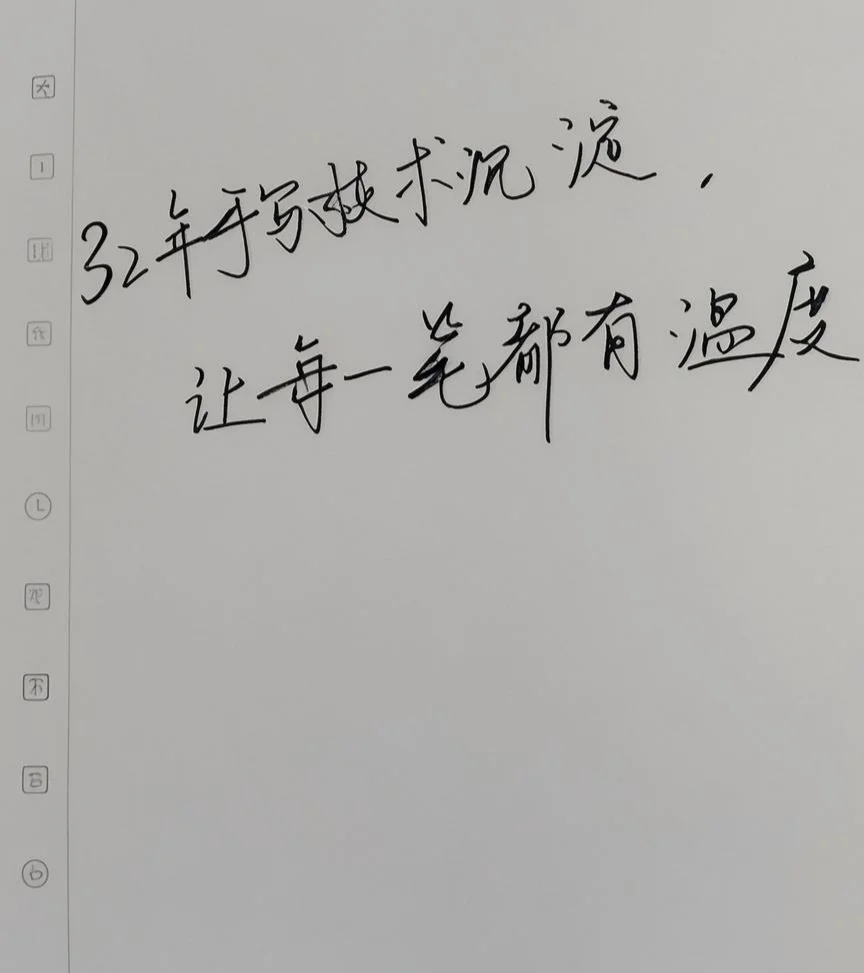 32年手写技术沉淀，
让每一笔都有温度